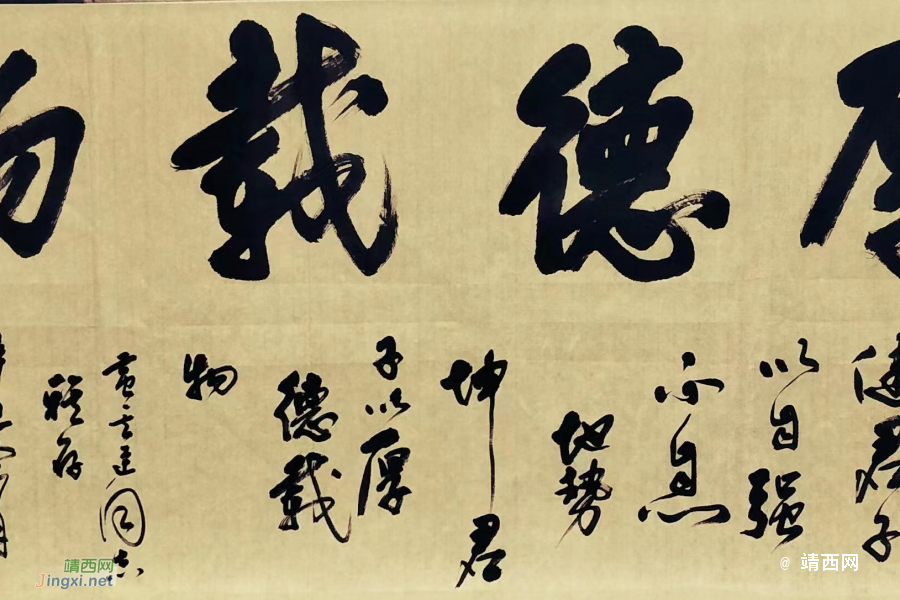 厚德载物
健君子
以自强
不息
地勢
坤君
子以厚
德载
物
同志
雅存
靖西网
Jingxi.net
@ 靖西网